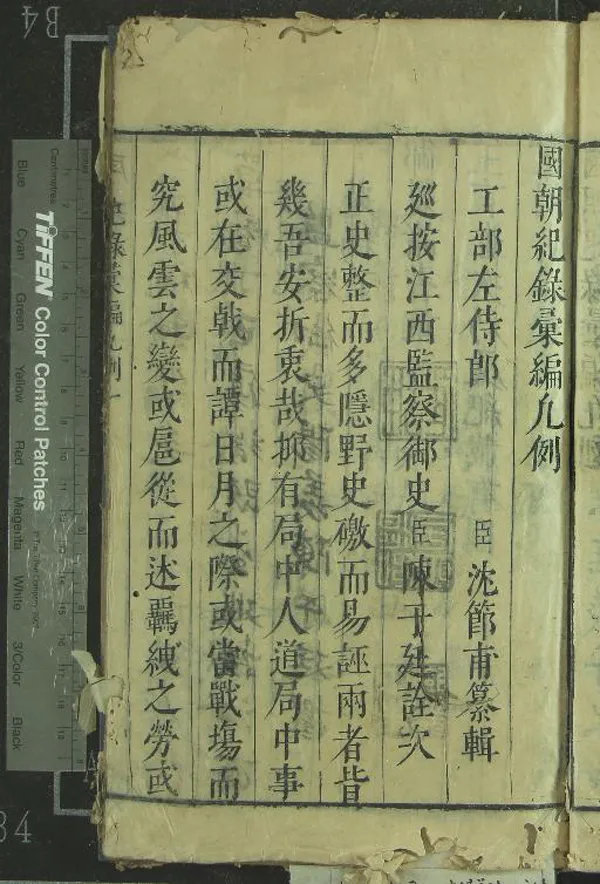 國朝紀錄彙編凡例
工部左侍郎 臣 沈節甫纂輯
廵按江西監察御史 臣 陳于廷詮次
正史整而多隱野史礉而易誣兩者皆
幾吾安折衷哉抑有局中人道局中事
或在交戟而譚日月之際或當戰塲而
究風雲之變或扈從而述羈絏之勞或
紀錄彙編凡例 一
Centimetres
TIFFEN Color Control Patches
Blue
Cyan
Green
Yellow
Red
Magenta
White
3/Color
Black
B4